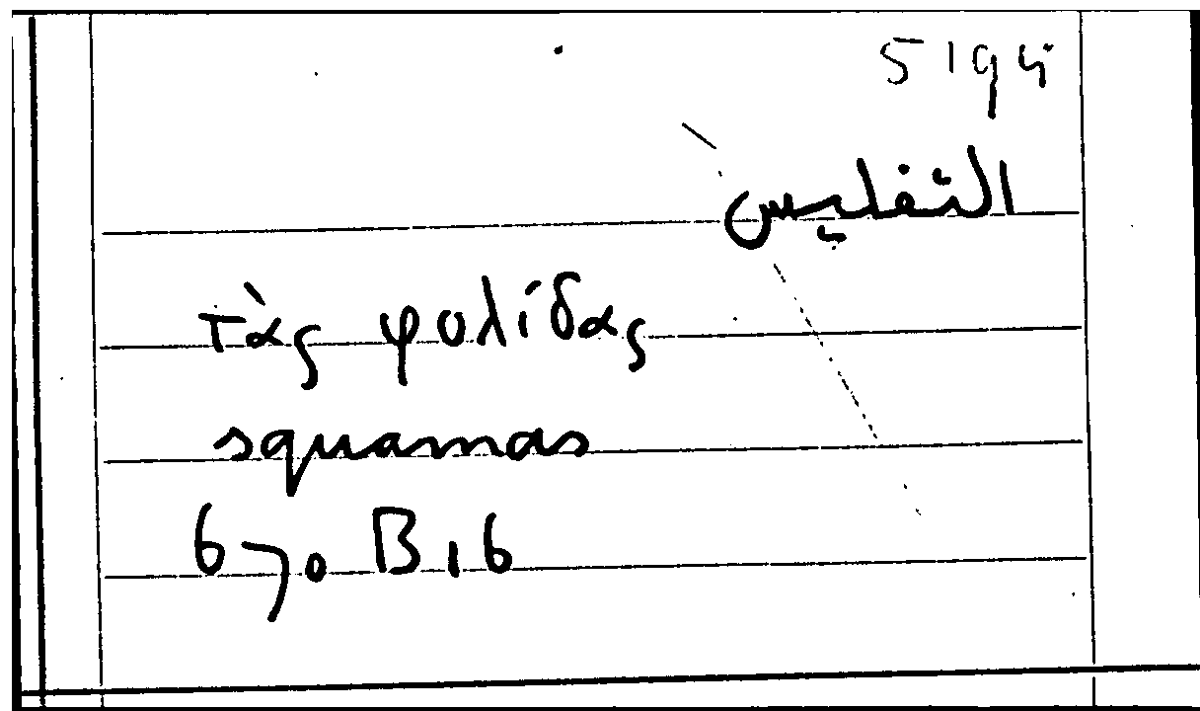 5194
التفليس
τὰς φολίδας
squamas
670 B 16